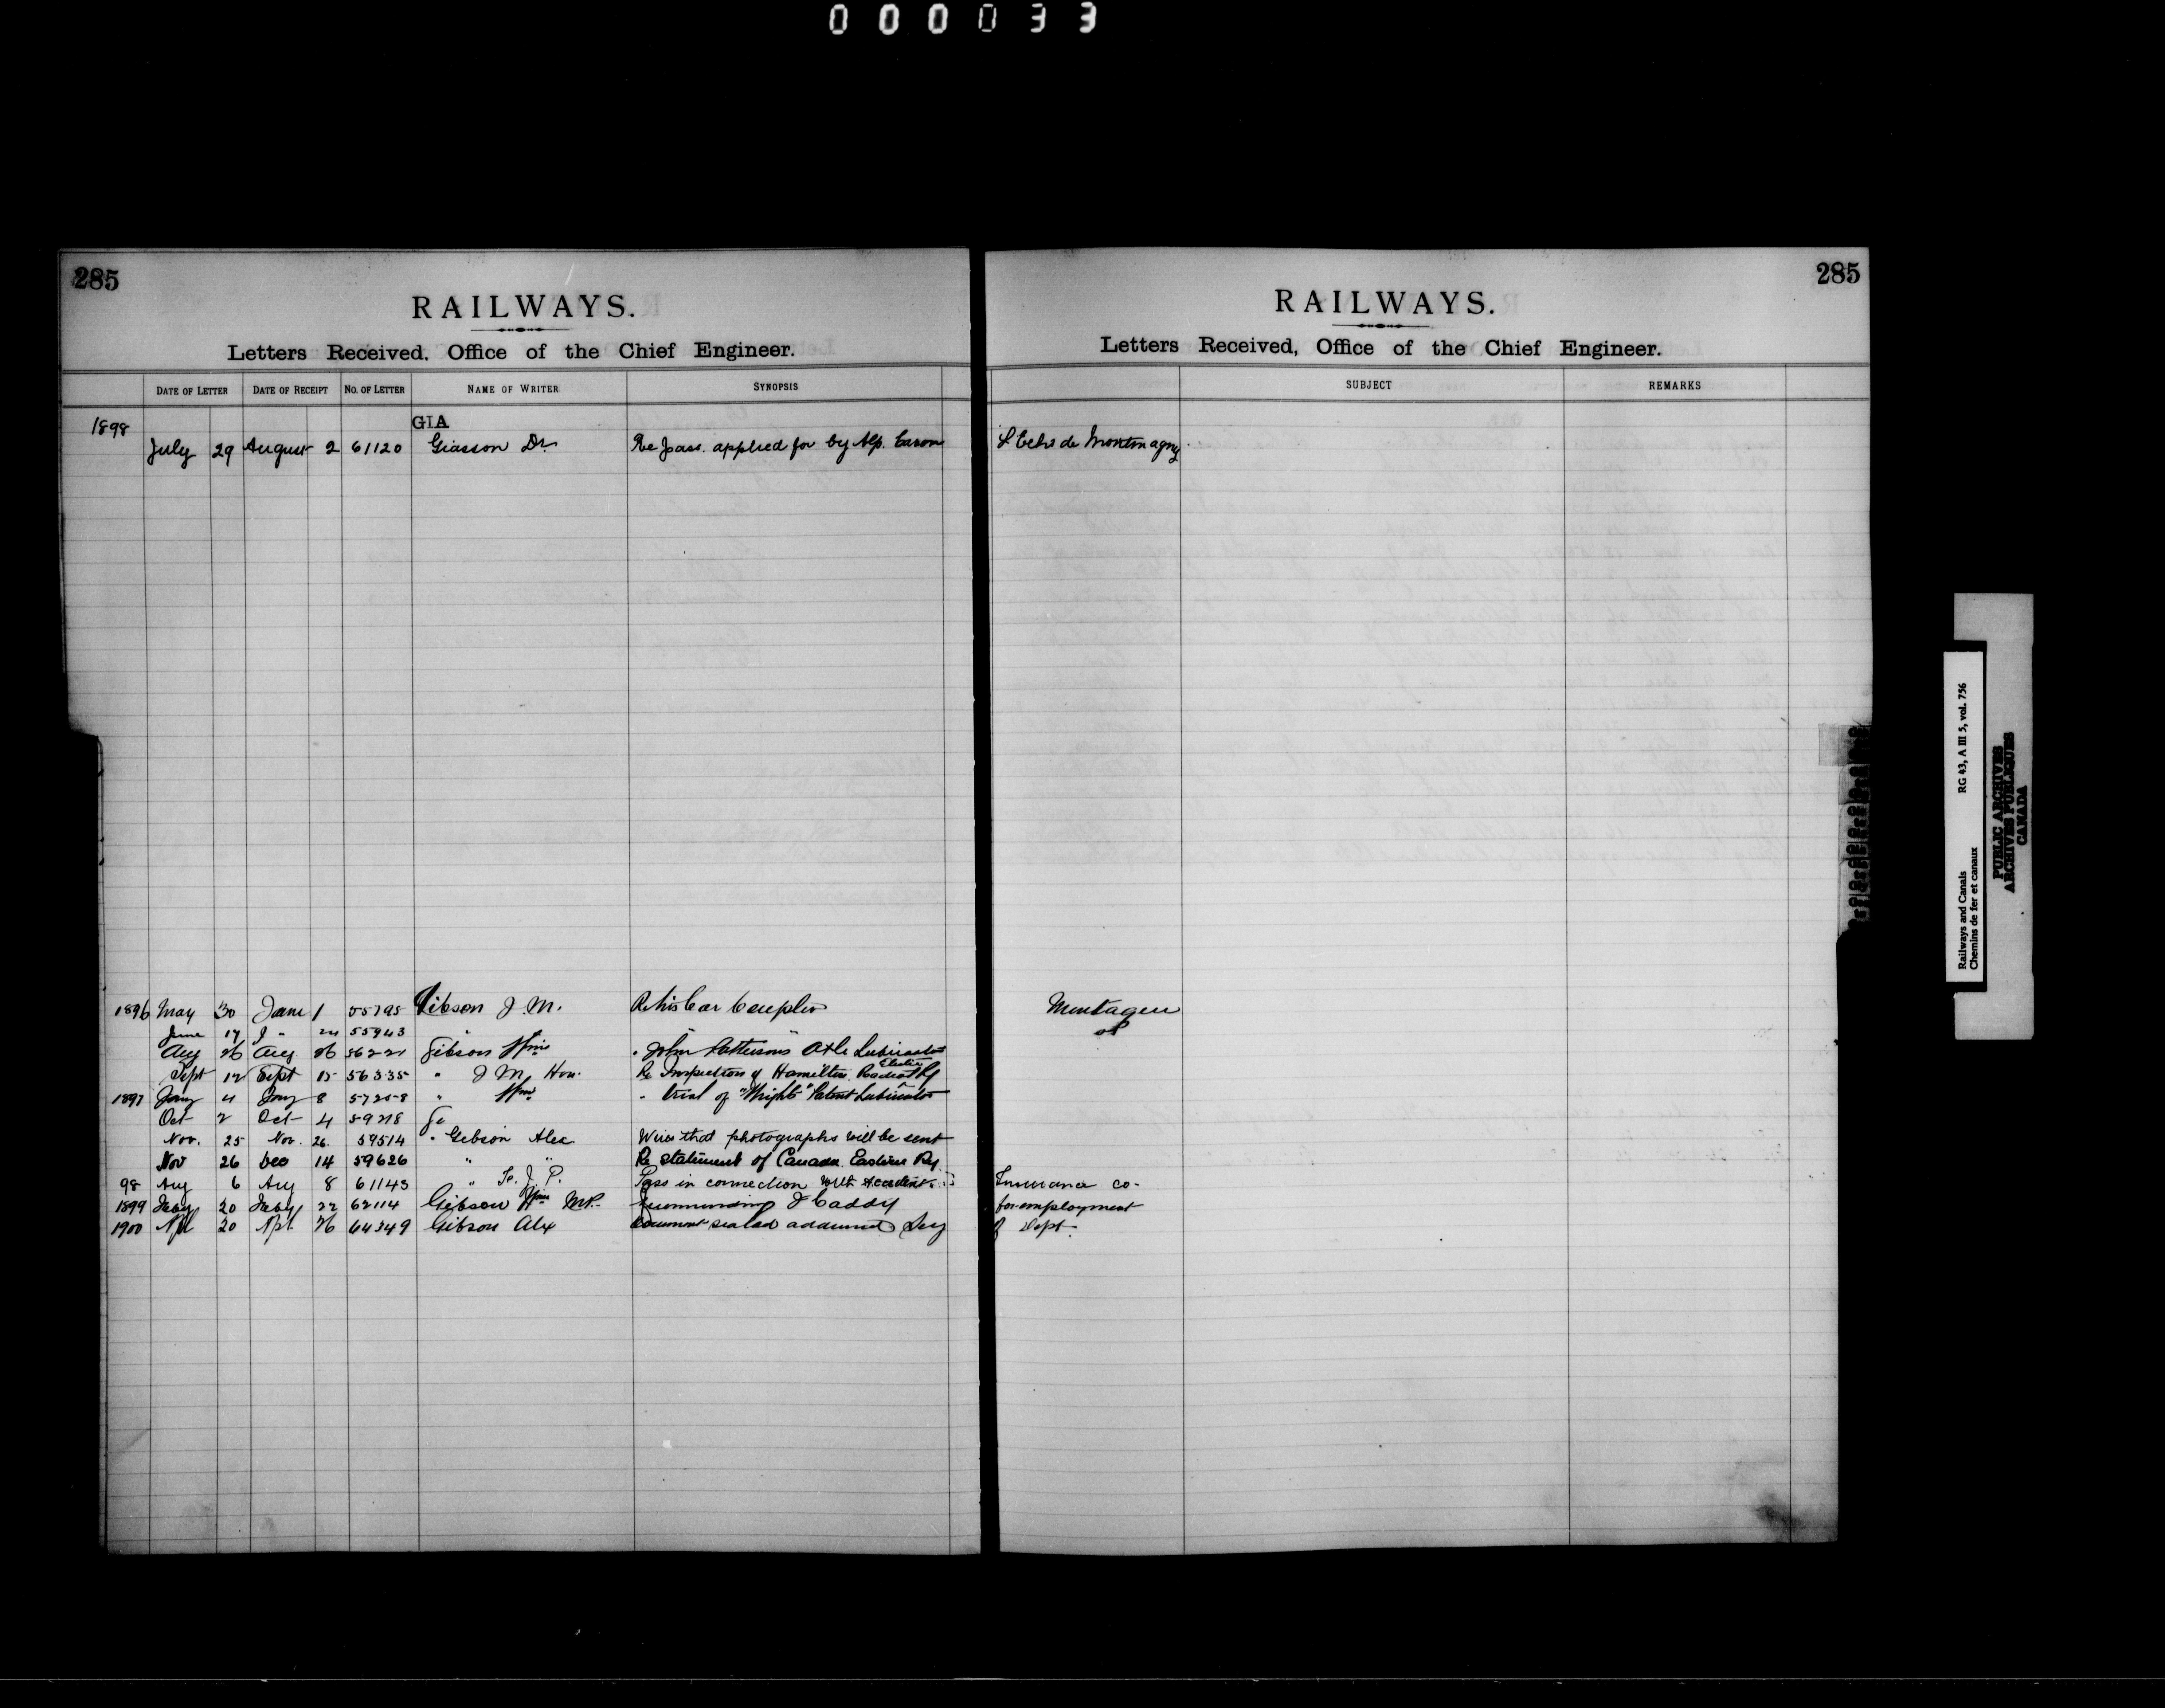 000033
285
RAILWAYS.
Letters Received, Office of the Chief Engineer.
DATE OF LETTER DATE OF RECEIPT No. OF LETTER NAME OF WRITER SYNOPSIS
GIA
1898 July 29 August 2 61120 Giasson Dr. Re pass. applied for by Alp. Caron
1896 May 30 June 1 55795 Gibson J. M. Re his Car Coupler
June 17 J " 24 55943 "
Aug 26 Aug 26 56221 Gibson Wm " John Pattersons Axle Lubricator
Sept 12 Sept 15 56335 " J M, Hon. Re Inspection of Hamilton Radial Electric Ry
1897 Jany 4 Jany 8 57258 " Wm " trial of "Wrights" Patent Lubricator
Oct 2 Oct 4 59218 Ge
Nov. 25 Nov. 26. 59514 " Gibson Alex Wires that photographs will be sent
Nov 26 Dec 14 59626 " " Re statement of Canada Eastern Ry.
98 Aug 6 Aug 8 61143 " F. J. P. Pass in connection with Accident
1899 Feby 20 Feby 22 62114 Gibson Wm M.P. Recommending J Caddy
1900 Apl 20 Apl. 26 64349 Gibson Alx Document sealed addressed Secy
285
RAILWAYS.
Letters Received, Office of the Chief Engineer.
SUBJECT REMARKS
L'Echo de Montmagny
Insurance Co.
for employment
of Dept.
Railways and Canals RG 43, A III 5, vol. 756
Chemins de fer et canaux
PUBLIC ARCHIVES
ARCHIVES PUBLIQUES
CANADA